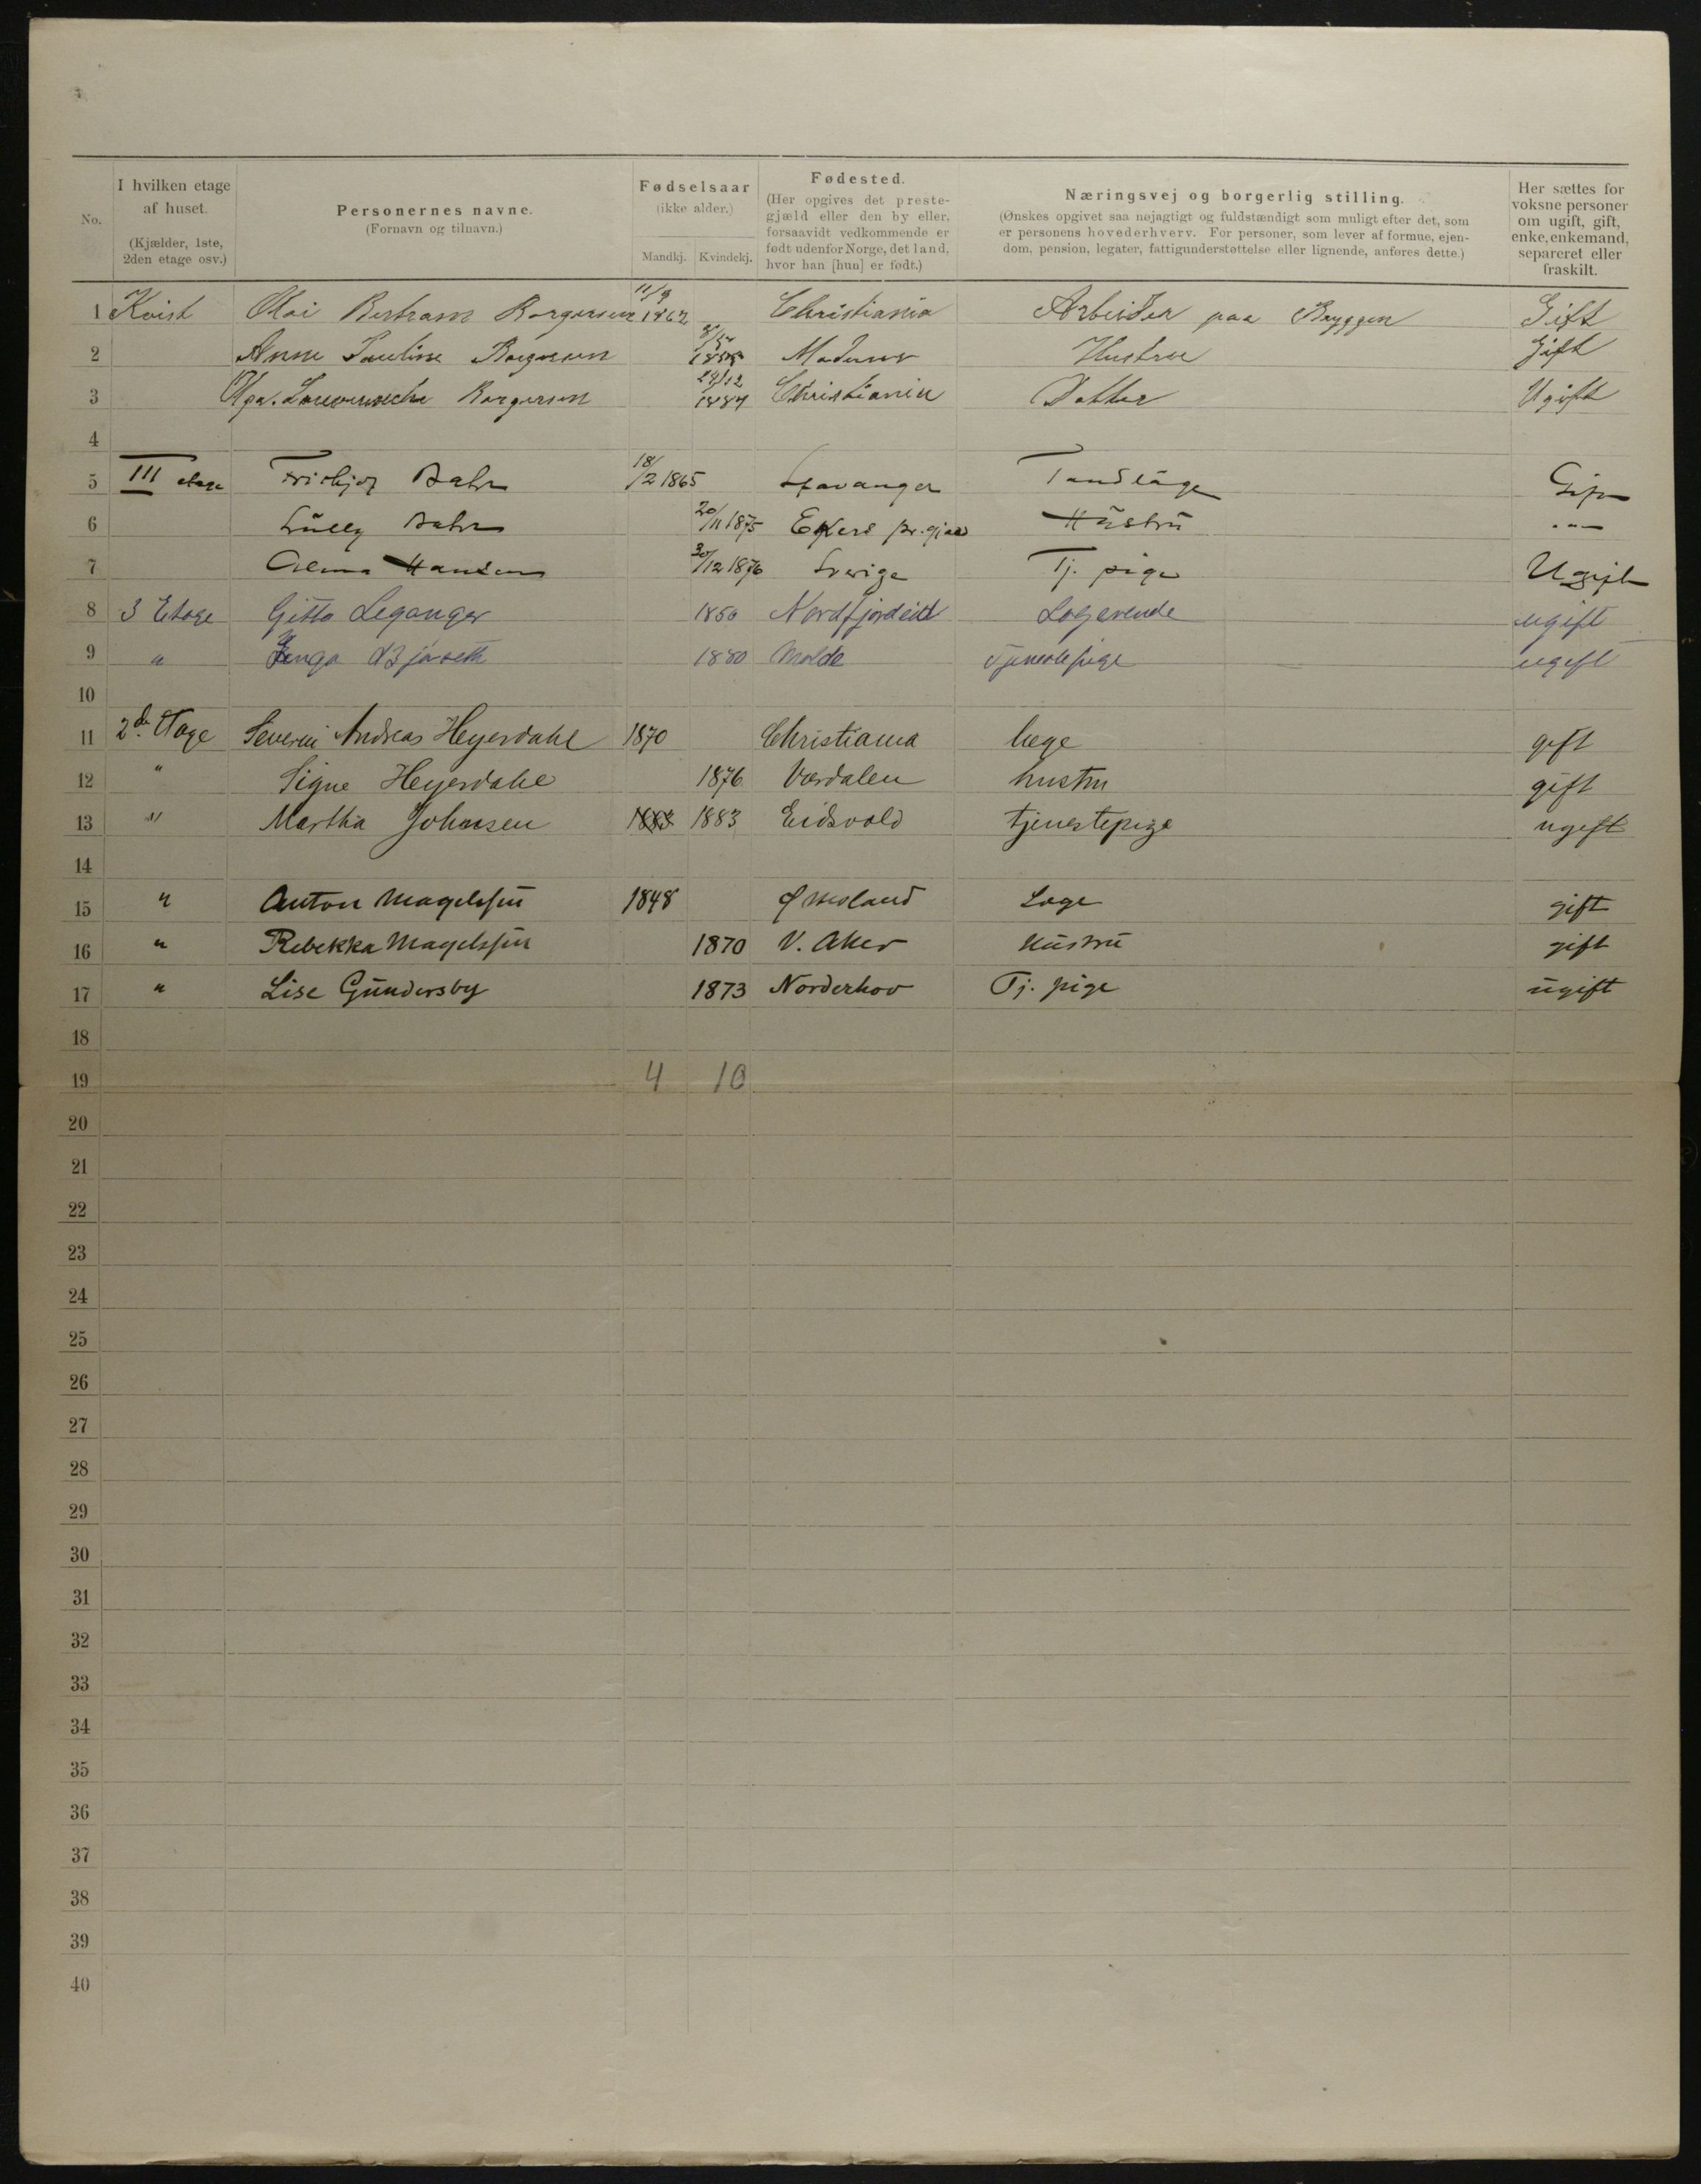 No.
I hvilken etage af huset. (Kjælder, 1ste, 2den etage osv.)
Personernes navne. (Fornavn og tilnavn.)
Fødselsaar (ikke alder.) Mandkj. Kvindekj.
Fødested. (Her opgives det prestegjæld eller den by eller, forsaavidt vedkommende er født udenfor Norge, det land, hvor han [hun] er født.)
Næringsvej og borgerlig stilling. (Ønskes opgivet saa nøjagtigt og fuldstændigt som muligt efter det, som er personens hovederhverv. For personer, som lever af formue, ejendom, pension, legater, fattigunderstøttelse eller lignende, anføres dette.)
Her sættes for voksne personer om ugift, gift, enke, enkemand, separeret eller fraskilt.
1 Kvist Olai Bertram Borgersen 11/9 1862 Christiania Arbeider paa Bryggen Gift
2 Anne Pauline Borgersen Hustrue Gift
3 Olga Borgersen 29/12 1887 Christiania Datter Ugift
4
5 III etage Frithjof Bahr 18/2 1865 Stavanger Tandlæge Gift
6 Lully Bahr 20/11 1875 Ekers pr.gjæld Hustru " "
7 Alma Hansen 30/12 1876 Sverige Tj. pige Ugift
8 3 Etage Gitta Leganger 1850 Nordfjordeid Logerende ugift
9 " Inga Bjørseth 1880 Molde Tjenestepige ugift
10
11 2de Etage Severin Andreas Heyerdahl 1870 Christiania læge gift
12 " Signe Heyerdahl 1876 Værdalen hustru gift
13 " Martha Johnsen 1883 1883 Eidsvold tjenestepige ugift
14
15 " Anton Magelssen 1848 Læge gift
16 " Rebekka Magelssen 1870 V. Aker Hustru gift
17 " Lise Gundersby 1873 Norderhov Tj. pige ugift
18
19 4 10
20
21
22
23
24
25
26
27
28
29
30
31
32
33
34
35
36
37
38
39
40